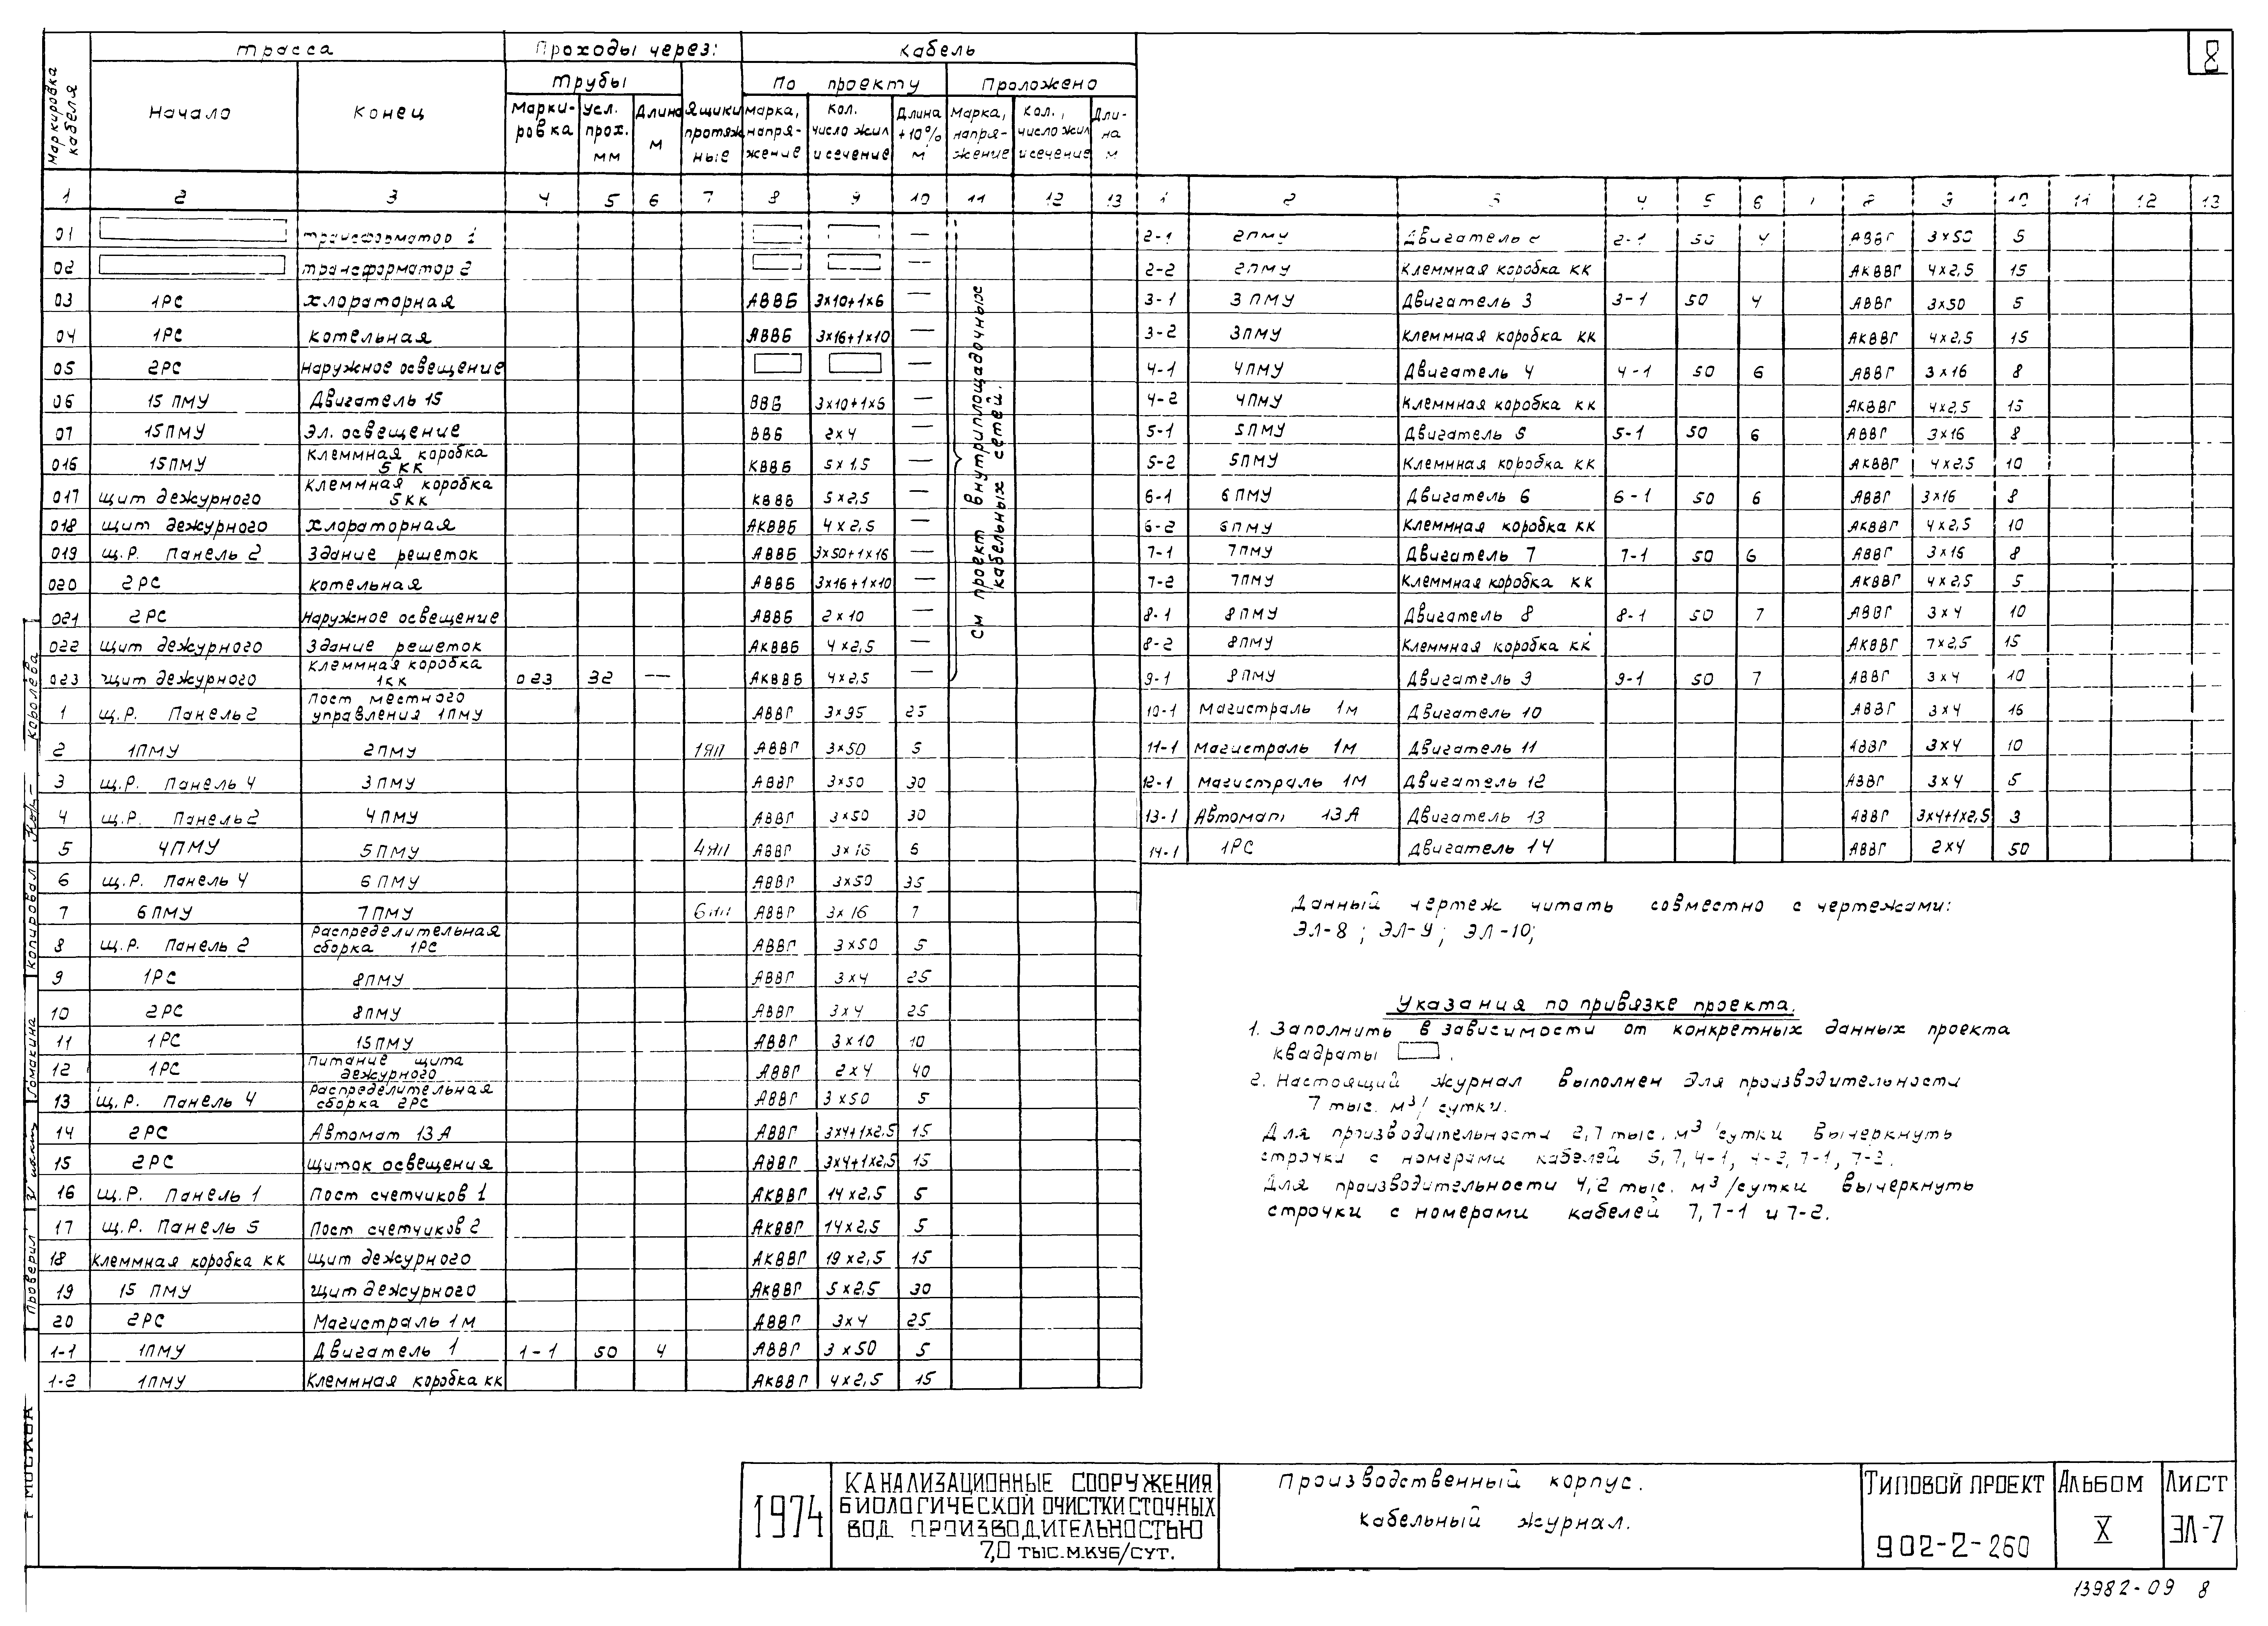 8
Маркировка кабеля
трасса
Проходы через:
кабель
трубы
По проекту
Проложено
Начало
Конец
Марки-ровка
усл. прох. мм
Длина м
Ящики протяж ные
марка, напря-жение
кол. число жил и сечение
Длина +10% м
Марка, напря-жение
кол., число жил и сечение
Дли-на м
1 2 3 4 5 6 7 8 9 10 11 12 13
01 трансформатор 1 —
02 трансформатор 2 —
03 1РС хлораторная АВВБ 3х10+1х6 —
04 1РС котельная АВВБ 3х16+1х10 —
05 2РС Наружное освещение —
06 15 ПМУ Двигатель 15 ВВБ 3х10+1х6 —
07 15ПМУ Эл. освещение ВВБ 2х4 —
016 15ПМУ Клеммная коробка 5КК КВВБ 5х1,5 —
017 щит дежурного Клеммная коробка 5КК КВВБ 5х2,5 —
018 щит дежурного хлораторная АКВВБ 4х2,5 —
019 щ.Р. Панель 2 Здание решеток АВВБ 3х50+1х16 —
020 2РС котельная АВВБ 3х16+1х10 —
021 2РС Наружное освещение АВВБ 2х10 —
022 щит дежурного Здание решеток АКВВБ 4х2,5 —
023 щит дежурного Клеммная коробка 1КК 023 32 — АКВВБ 4х2,5 —
См проект внутриплощадочных кабельных сетей.
1 щ.Р. Панель 2 Пост местного управления 1ПМУ АВВГ 3х95 25
2 1ПМУ 2ПМУ 1ЯП АВВГ 3х50 5
3 щ.Р. Панель 4 3ПМУ АВВГ 3х50 30
4 щ.Р. Панель 2 4ПМУ АВВГ 3х50 30
5 4ПМУ 5ПМУ 4ЯП АВВГ 3х16 6
6 щ.Р. Панель 4 6ПМУ АВВГ 3х50 35
7 6ПМУ 7ПМУ 6ЯП АВВГ 3х16 7
8 щ.Р. Панель 2 Распределительная сборка 1РС АВВГ 3х50 5
9 1РС 8ПМУ АВВГ 3х4 25
10 2РС 8ПМУ АВВГ 3х4 25
11 1РС 15ПМУ АВВГ 3х10 10
12 1РС Питание щита дежурного АВВГ 2х4 40
13 щ.Р. Панель 4 Распределительная сборка 2РС АВВГ 3х50 5
14 2РС Автомат 13А АВВГ 3х4+1х2.5 15
15 2РС Щиток освещения АВВГ 3х4+1х2,5 15
16 щ.Р. Панель 1 Пост счетчиков 1 АКВВГ 14х2,5 5
17 щ.Р. Панель 5 Пост счетчиков 2 АКВВГ 14х2,5 5
18 Клеммная коробка КК Щит дежурного АКВВГ 19х2,5 15
19 15 ПМУ Щит дежурного АКВВГ 5х2,5 30
20 2РС Магистраль 1м АВВГ 3х4 25
1-1 1ПМУ Двигатель 1 1-1 50 4 АВВГ 3х50 5
1-2 1ПМУ Клеммная коробка КК АКВВГ 4х2,5 15
1 2 3 4 5 6 7 8 9 10 11 12 13
2-1 2ПМУ Двигатель 2 2-1 50 4 АВВГ 3х50 5
2-2 2ПМУ Клеммная коробка КК АКВВГ 4х2,5 15
3-1 3ПМУ Двигатель 3 3-1 50 4 АВВГ 3х50 5
3-2 3ПМУ Клеммная коробка КК АКВВГ 4х2,5 15
4-1 4ПМУ Двигатель 4 4-1 50 6 АВВГ 3х16 8
4-2 4ПМУ Клеммная коробка КК АКВВГ 4х2,5 15
5-1 5ПМУ Двигатель 5 5-1 50 6 АВВГ 3х16 8
5-2 5ПМУ Клеммная коробка КК АКВВГ 4х2,5 10
6-1 6ПМУ Двигатель 6 6-1 50 6 АВВГ 3х16 8
6-2 6ПМУ Клеммная коробка КК АКВВГ 4х2,5 10
7-1 7ПМУ Двигатель 7 7-1 50 6 АВВГ 3х16 8
7-2 7ПМУ Клеммная коробка КК АКВВГ 4х2,5 5
8-1 8ПМУ Двигатель 8 8-1 50 7 АВВГ 3х4 10
8-2 8ПМУ Клеммная коробка КК АКВВГ 7х2,5 15
9-1 9ПМУ Двигатель 9 9-1 50 7 АВВГ 3х4 10
10-1 Магистраль 1м Двигатель 10 АВВГ 3х4 16
11-1 Магистраль 1м Двигатель 11 АВВГ 3х4 10
12-1 Магистраль 1М Двигатель 12 АВВГ 3х4 5
13-1 Автомат 13А Двигатель 13 АВВГ 3х4+1х2,5 3
14-1 1РС Двигатель 14 АВВГ 2х4 50
Данный чертеж читать совместно с чертежами:
ЭЛ-8; ЭЛ-9; ЭЛ-10;
Указания по привязке проекта.
1. Заполнить в зависимости от конкретных данных проекта
квадраты .
2. Настоящий журнал выполнен для производительности
7 тыс. м³/сутки.
Для производительности 2,7 тыс. м³/сутки вычеркнуть
строчки с номерами кабелей 5,7,4-1, 4-2, 7-1, 7-2.
Для производительности 4,2 тыс. м³/сутки вычеркнуть
строчки с номерами кабелей 7, 7-1 и 7-2.
Королёва
Копировал
Ломакина
Проверил
МОСКВА
1974
КАНАЛИЗАЦИОННЫЕ СООРУЖЕНИЯ
БИОЛОГИЧЕСКОЙ ОЧИСТКИ СТОЧНЫХ
ВОД ПРОИЗВОДИТЕЛЬНОСТЬЮ
7,0 ТЫС.М.КУБ/СУТ.
Производственный корпус.
Кабельный журнал.
ТИПОВОЙ ПРОЕКТ
902-2-260
АЛЬБОМ
X
ЛИСТ
ЭЛ-7
13982-09 8